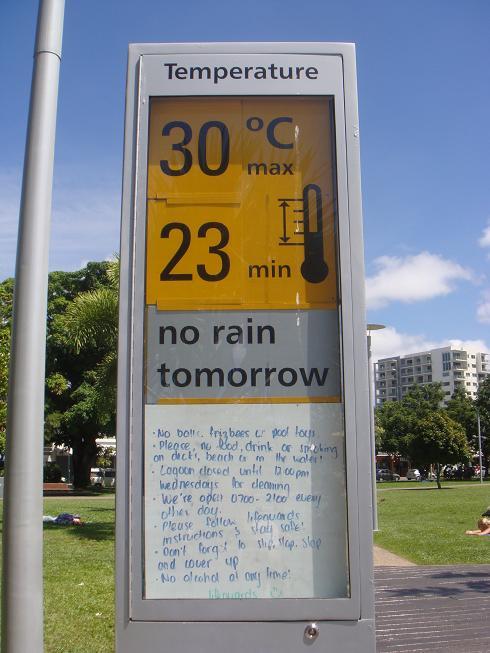 Temperature
30 °C
max
23 min
no rain
tomorrow
• No balls, frizbees or pool toys
• Please, no food, drink or smoking
on deck, beach or in the water!
• Lagoon closed until 12.00pm
wednesdays for cleaning
• We're open 0700 - 2100 every
other day.
• Please follow lifeguards
instructions & stay safe!
• Don't forget to slip, slop, slap
and cover up
• No alcohol at any time!
lifeguards